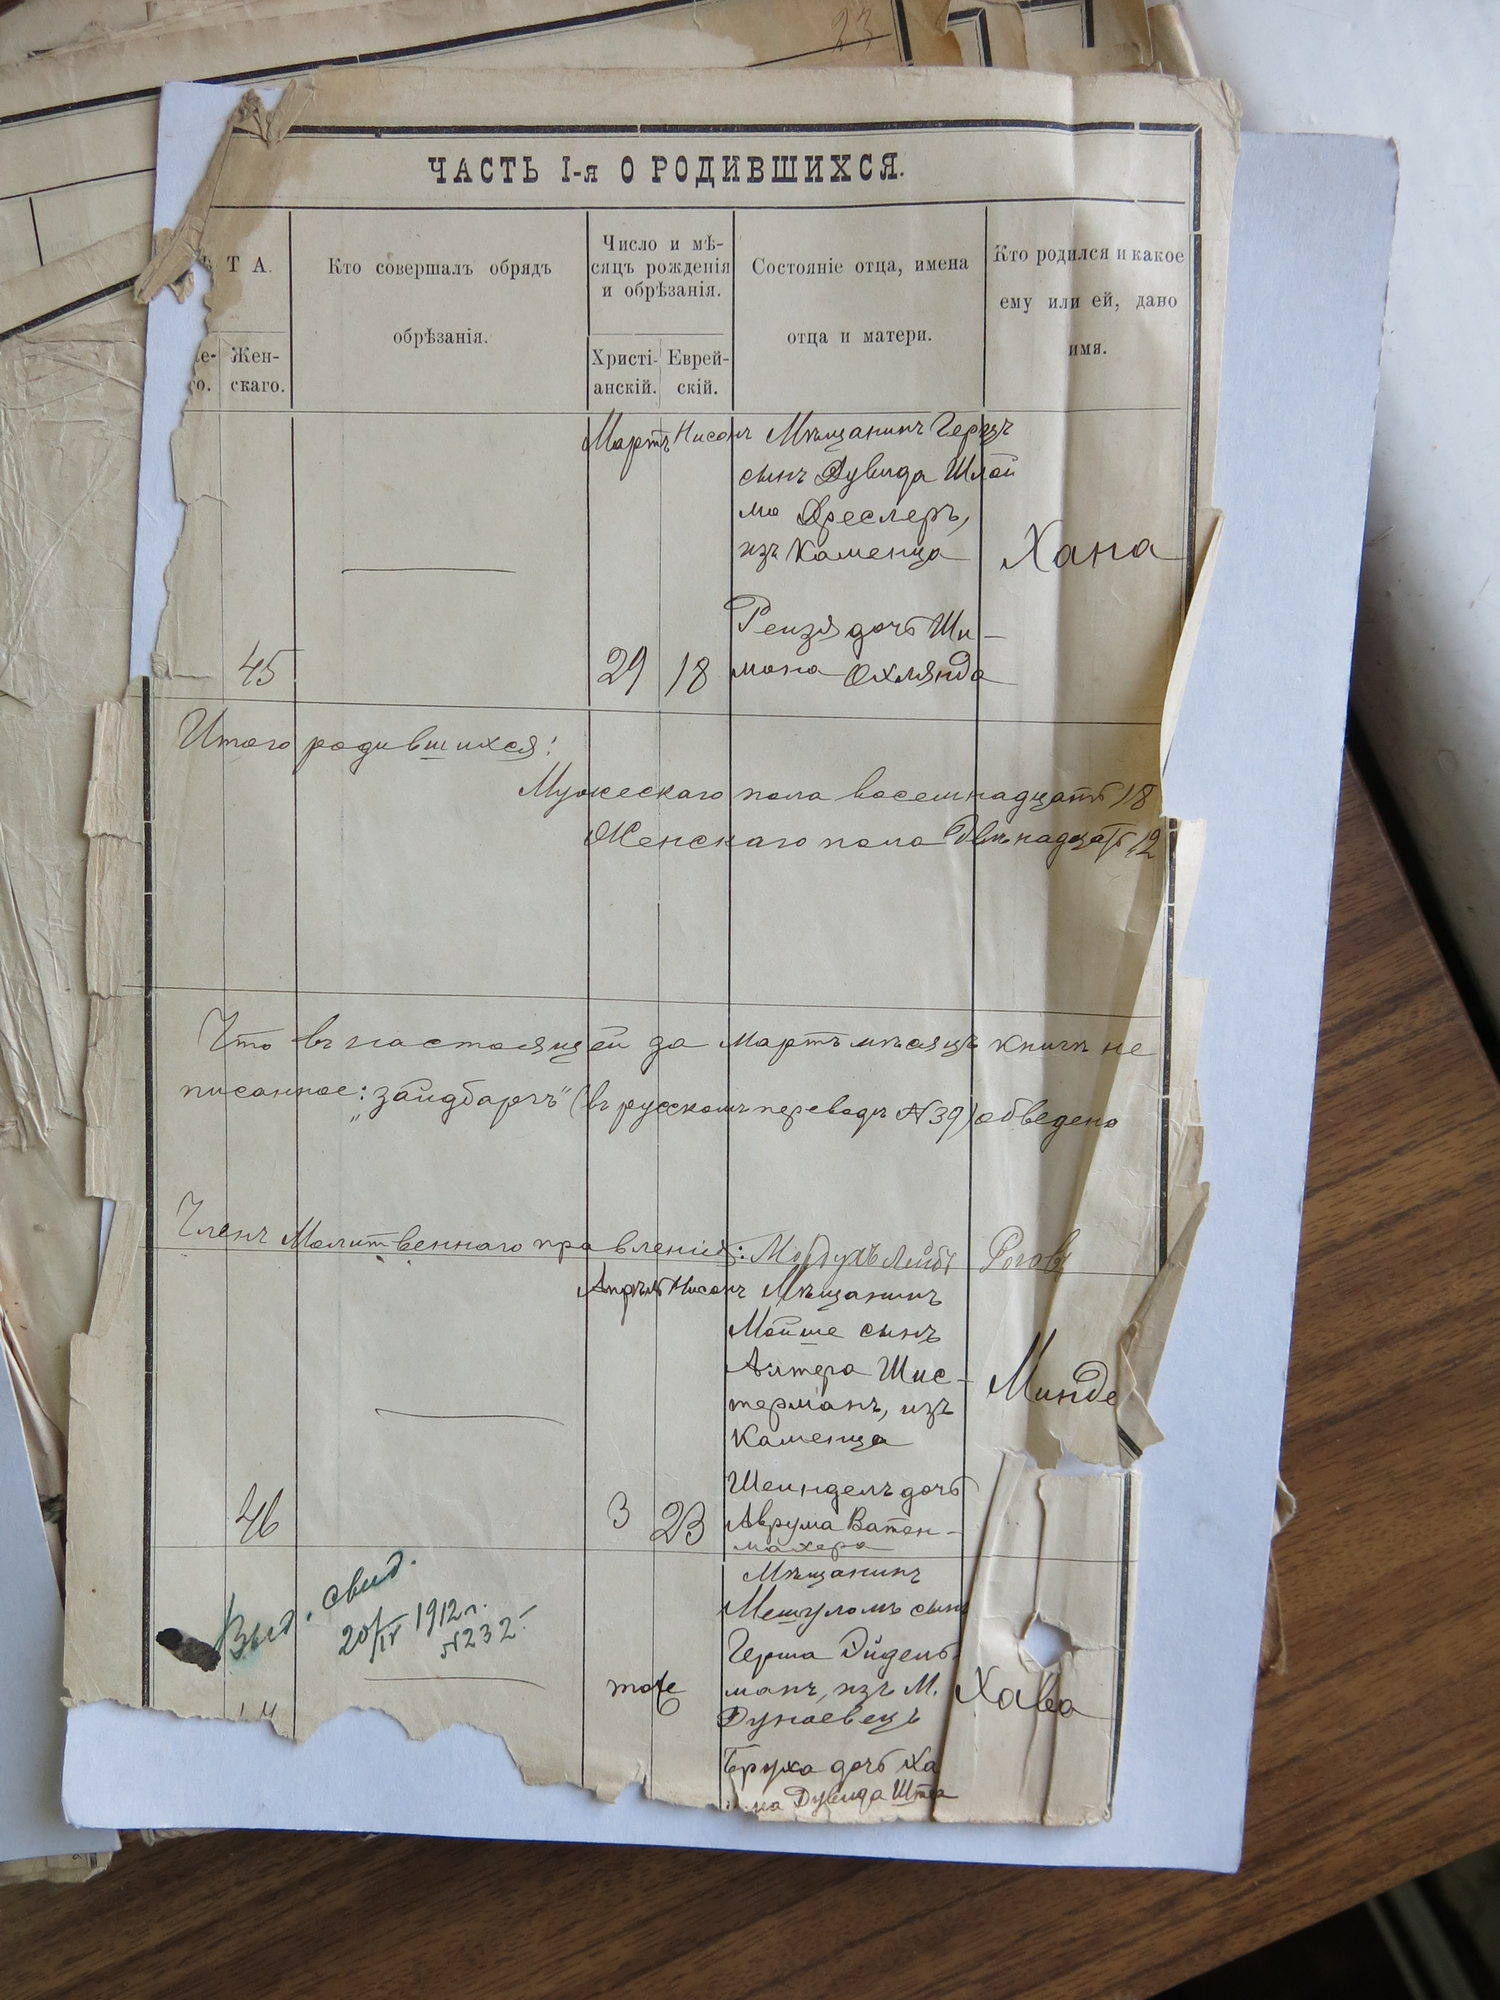 23
ЧАСТЬ I-я О РОДИВШИХСЯ.
Т А.
Кто совершалъ обрядъ
обрѣзанія.
Число и мѣ-
сяцъ рожденія
и обрѣзанія.
Состояніе отца, имена
отца и матери.
Кто родился и какое
ему или ей, дано
имя.
Жен-
скаго.
Христі-
анскій.
Еврей-
скій.
Мартъ Нисонъ Мѣщанинъ Герцъ
сынъ Дувида Шлой
ма Дреслеръ,
изъ Каменца
Хана
Рейзя дочь Ши-
45 29 18 мона Охлянда
Итого родившихся:
Мужескаго пола восемнадцать 18
Женскаго пола двѣнадцать 12
Что въ настоящей за мартъ мѣсяцъ книгѣ не
писанное: „зайдбаръ" (въ русскомъ переводѣ N 39) обведено
Членъ Молитвеннаго правленія: Мордухъ Лейбъ
Апрѣль Нисонъ Мѣщанинъ
Мойше сынъ
Алтера Шис-
терманъ, изъ
Каменца
Минде
Шейндель дочь
46 3 23 Аврума Ватен-
махера
Мѣщанинъ
Мешуломъ сынъ
Герша Эйдель
манъ, изъ М.
Дунаевецъ
Выд. свид.
20/IV 1912 г.
N 232.
тоже
Хава
Бруха дочь Ха
ма Дувида Штер